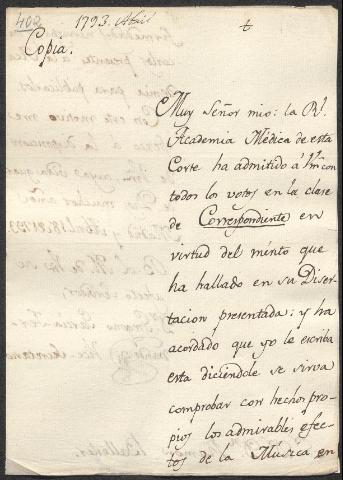 402
1793. Abril
Copia.
Muy Señor mio: la Rl.
Academia Médica de esta
Corte ha admitido á Vm con
todos los votos en la clase
de Correspondiente en
virtud del mérito que
ha hallado en su Diser-
tacion presentada: y ha
acordado que yo le escriba
esta diciendole se sirva
comprobar con hechos pro-
pios los admirables efec-
tos de la Música en